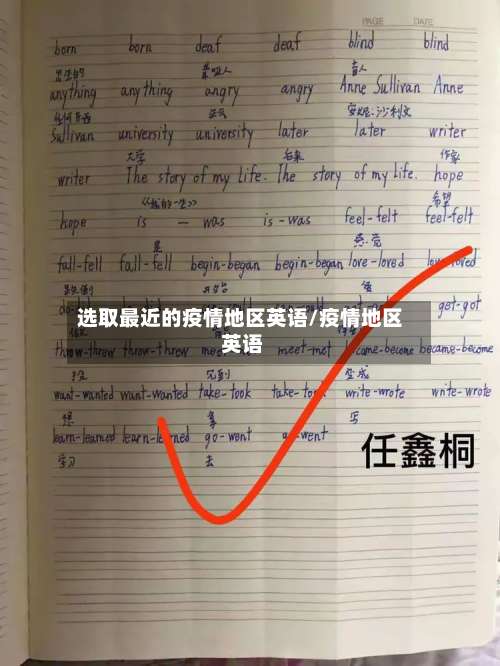 PAGE DATE
born born deaf deaf blind blind
出生的 聋哑人 盲人
anything anything angry angry Anne Sullivan Anne
任何东西 安妮·沙利文
Sullivan university university later later writer
大学 后来 作家
writer The story of my life. The story of my life. hope
《我的一生》 希望
hope is — was is - was feel-felt feel-felt
是 感觉
fall-fell fall-fell begin-began begin-began love-loved love-loved
got-got
选取最近的疫情地区英语/疫情地区
英语
throw-threw throw-threw meet-met became-become
见到 变成
want-wanted want-wanted take-took take-took write-wrote write-wrote
想 拿 写
learn-learned learn-learned go-went go-went
学习 去
任鑫桐